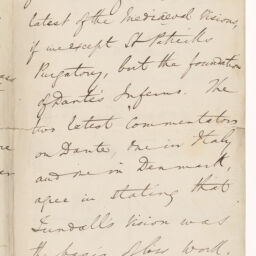 latest of the Mediæval Visions,
if we except St Patrick's
Purgatory, but the foundation
of Dante's Inferno. The
two latest Commentators
on Dante, one in Italy
and one in Denmark,
agree in stating that
Tundall's Vision was
the basis of his work.